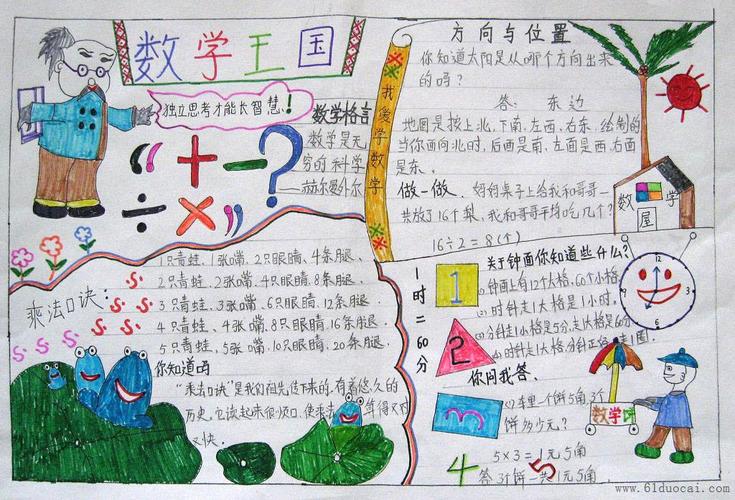 数学王国
独立思考才能长智慧！
数学格言
数学是无
穷的科学
——赫尔曼外尔
我爱学数学
方向与位置
你知道太阳是从哪个方向出来
的吗？
答：东边
地图是按上北、下南、左西、右东，绘制的
当你面向北时，后面是南，左面是西，右面
是东。
做一做、妈妈桌子上给我和哥哥一
共放了16个梨，我和哥哥平均吃几个？
16÷2=8(个)
数学
屋
乘法口诀：
1只青蛙，1张嘴，2只眼睛，4条腿。
2只青蛙，2张嘴，4只眼睛，8条腿。
3只青蛙，3张嘴，6只眼睛，12条腿。
4只青蛙，4张嘴，8只眼睛，16条腿。
5只青蛙，5张嘴，10只眼睛，20条腿。
你知道吗
"乘法口诀"是我们祖先传下来的，有着悠久的
历史，它读起来很顺口，使乘法
算得又对
又快。
1时=60分
关于钟面你知道些什么？
钟面上有12个大格，60个小格
(2)时针走1大格是1小时。
(3)分针走1小格是分，走1大格是5分
(4)时针走1大格，分针正好走1圈。
12
3
6
9
1
2
3
4
5
你问我答。
(1)车里一个饼5角，3个
饼多少元？
5×3=1元5角
答3个饼一共1元5角
数学饼
www.61duocai.com